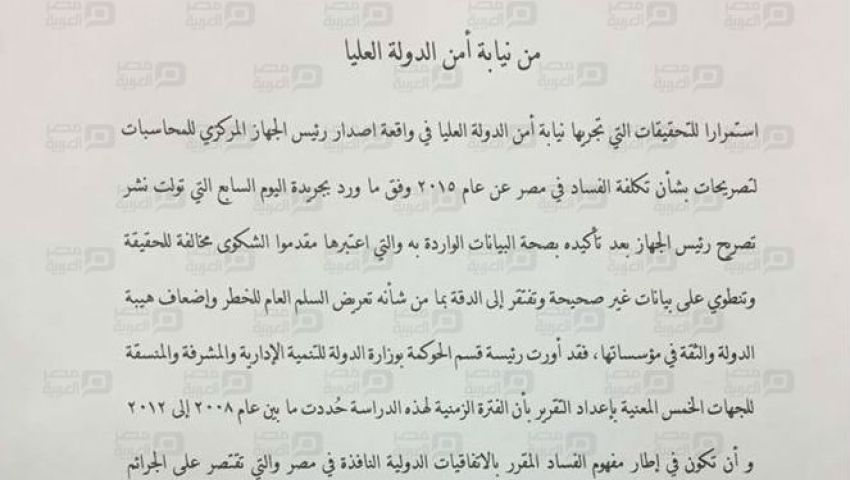 من نيابة أمن الدولة العليا
استمرارا للتحقيقات التي تجريها نيابة أمن الدولة العليا في واقعة اصدار رئيس الجهاز المركزي للمحاسبات
لتصريحات بشأن تكلفة الفساد في مصر عن عام ٢٠١٥ وفق ما ورد بجريدة اليوم السابع التي تولت نشر
تصريح رئيس الجهاز بعد تأكيده بصحة البيانات الواردة به والتي اعتبرها مقدموا الشكوى مخالفة للحقيقة
وتنطوي على بيانات غير صحيحة وتفتقر إلى الدقة بما من شأنه تعريض السلم العام للخطر وإضعاف هيبة
الدولة والثقة في مؤسساتها ، فقد أورت رئيسة قسم الحوكمة بوزارة الدولة للتنمية الإدارية والمشرفة والمنسقة
للجهات الخمس المعنية بإعداد التقرير بأن الفترة الزمنية لهذه الدراسة حُددت ما بين عام ٢٠٠٨ إلى ٢٠١٢
و أن تكون في إطار مفهوم الفساد المقرر بالاتفاقيات الدولية النافذة في مصر والتي تقتصر على الجرائم
مصر العربية